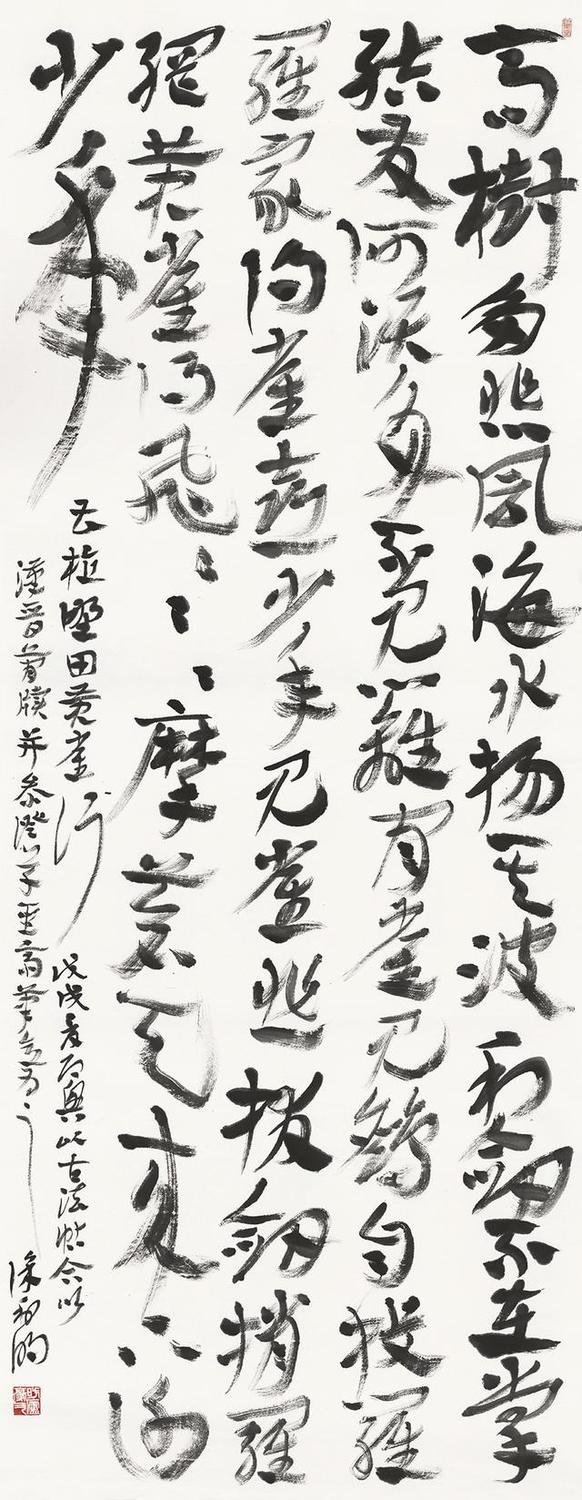 高樹多悲風海水揚其波利劍不在掌
結友何須多不見籬間雀見鷂自投羅
羅家得雀喜少年見雀悲拔劍捎羅
網黃雀得飛〻〻〻摩蒼天來下謝
少年
植野田黃雀行 戊戌夏月興此古法帖合以
漢晉簡牘并參筆意為之 徐